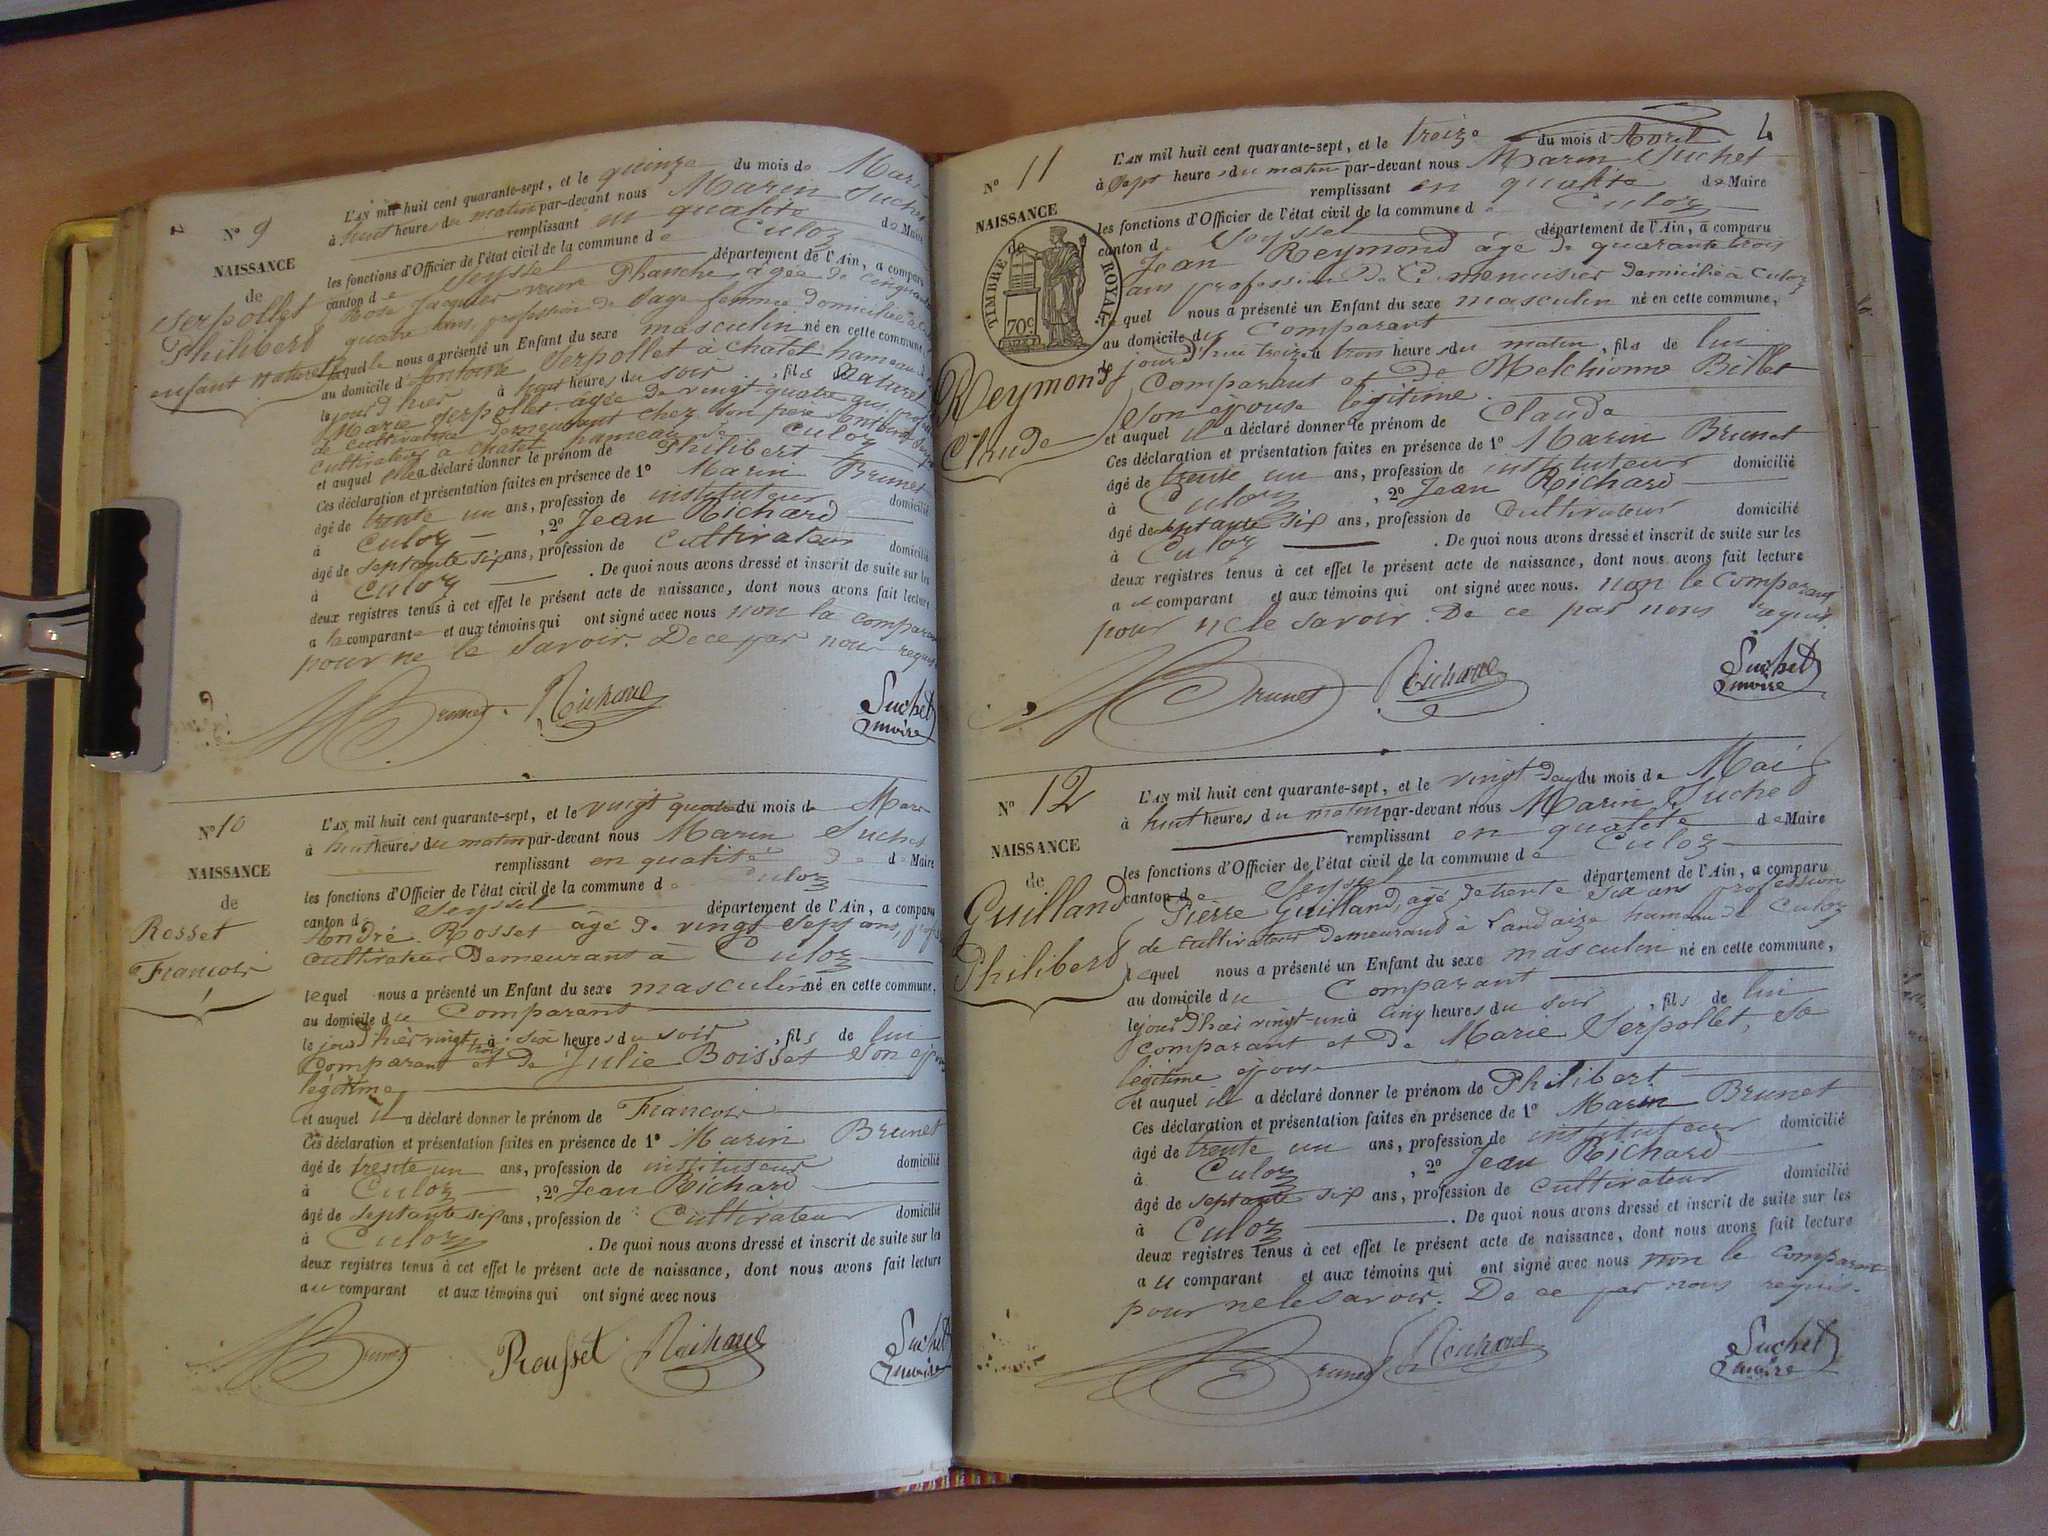 N° 9
NAISSANCE
de
Serpollet
Philibert
enfant naturel
L'AN mil huit cent quarante-sept, et le quinze du mois de Mars
à huit heures du matin par-devant nous Marin Suchet
remplissant en qualité de Maire
les fonctions d'Officier de l'état civil de la commune de Culoz
canton de Seyssel département de l'Ain, a comparu
Rose Jacquier veuve Planche, agée de cinquante
quatre ans, profession de Sage femme domiciliée à
laquelle nous a présenté un Enfant du sexe masculin né en cette commune,
au domicile d'Antoine Serpollet à chatel hameau
le jour d'hier à huit heures du soir, fils Naturel
Marie Serpollet agée de vingt quatre
de cultivatrice demeurant chez son père Antoine
cultivateur à chatel hameau de Culoz
et auquel elle a déclaré donner le prénom de Philibert
Ces déclaration et présentation faites en présence de 1° Marin Brunet
âgé de trente un ans, profession de instituteur domicilié
à Culoz , 2° Jean Richard
âgé de septante six ans, profession de cultivateur domicilié
à Culoz . De quoi nous avons dressé et inscrit de suite sur les
deux registres tenus à cet effet le présent acte de naissance, dont nous avons fait lecture
a la comparante et aux témoins qui ont signé avec nous non la comparante
pour ne le savoir. De ce par nous requis
Brunet Richard Suchet
maire
N° 10
NAISSANCE
de
Rosset
Francois
L'AN mil huit cent quarante-sept, et le vingt quatre du mois de Mars
à huit heures du matin par-devant nous Marin Suchet
remplissant en qualité de de Maire
les fonctions d'Officier de l'état civil de la commune de Culoz
canton de Seyssel département de l'Ain, a comparu
André Rosset âgé de vingt sept ans,
cultivateur Demeurant à Culoz
lequel nous a présenté un Enfant du sexe masculin né en cette commune,
au domicile du Comparant
le jour d'hier vingt trois à six heures du soir, fils de lui
Comparant et de Julie Boisset son
légitime
et auquel il a déclaré donner le prénom de Francois
Ces déclaration et présentation faites en présence de 1° Marin Brunet
âgé de trente un ans, profession de instituteur domicilié
à Culoz , 2° Jean Richard
âgé de septante six ans, profession de Cultivateur domicilié
à Culoz . De quoi nous avons dressé et inscrit de suite sur les
deux registres tenus à cet effet le présent acte de naissance, dont nous avons fait lecture
au comparant et aux témoins qui ont signé avec nous
Brunet Rousset Richard Suchet
maire
4
N° 11
NAISSANCE
de
TIMBRE ROYAL
70c
Reymond
Claude
L'AN mil huit cent quarante-sept, et le treize du mois d'Avril
à Sept heures du matin par-devant nous Marin Suchet
remplissant en qualité de Maire
les fonctions d'Officier de l'état civil de la commune de Culoz
canton de Seyssel département de l'Ain, a comparu
Jean Reymond âgé de quarante trois
ans profession de menuisier domicilié à Culoz
lequel nous a présenté un Enfant du sexe masculin né en cette commune,
au domicile du Comparant
jourd'hui treize à trois heures du matin, fils de lui
Comparant et de Melchionne Billet
son épouse légitime.
et auquel il a déclaré donner le prénom de Claude
Ces déclaration et présentation faites en présence de 1° Marin Brunet
âgé de trente un ans, profession de instituteur domicilié
à Culoz , 2° Jean Richard
âgé de septante six ans, profession de Cultivateur domicilié
à Culoz . De quoi nous avons dressé et inscrit de suite sur les
deux registres tenus à cet effet le présent acte de naissance, dont nous avons fait lecture
au comparant et aux témoins qui ont signé avec nous. non le comparant
pour ne le savoir. De ce par nous requis.
Brunet Richard Suchet
maire
N° 12
NAISSANCE
de
Guilland
Philibert
L'AN mil huit cent quarante-sept, et le vingt-deux du mois de Mai
à huit heures du matin par-devant nous Marin Suchet
remplissant en qualité de Maire
les fonctions d'Officier de l'état civil de la commune de Culoz
canton de Seyssel département de l'Ain, a comparu
Pierre Guilland, agé de trente six ans profession
de cultivateur demeurant à Landaize hameau de Culoz
lequel nous a présenté un Enfant du sexe masculin né en cette commune,
au domicile du Comparant
le jour d'hier vingt-un à cinq heures du soir, fils de lui
comparant et de Marie Serpollet, sa
légitime épouse
et auquel il a déclaré donner le prénom de Philibert
Ces déclaration et présentation faites en présence de 1° Marin Brunet
âgé de trente un ans, profession de instituteur domicilié
à Culoz , 2° Jean Richard
âgé de septante six ans, profession de cultivateur domicilié
à Culoz . De quoi nous avons dressé et inscrit de suite sur les
deux registres tenus à cet effet le présent acte de naissance, dont nous avons fait lecture
au comparant et aux témoins qui ont signé avec nous non le comparant
pour ne le savoir. De ce par nous requis.
Brunet Richard Suchet
maire